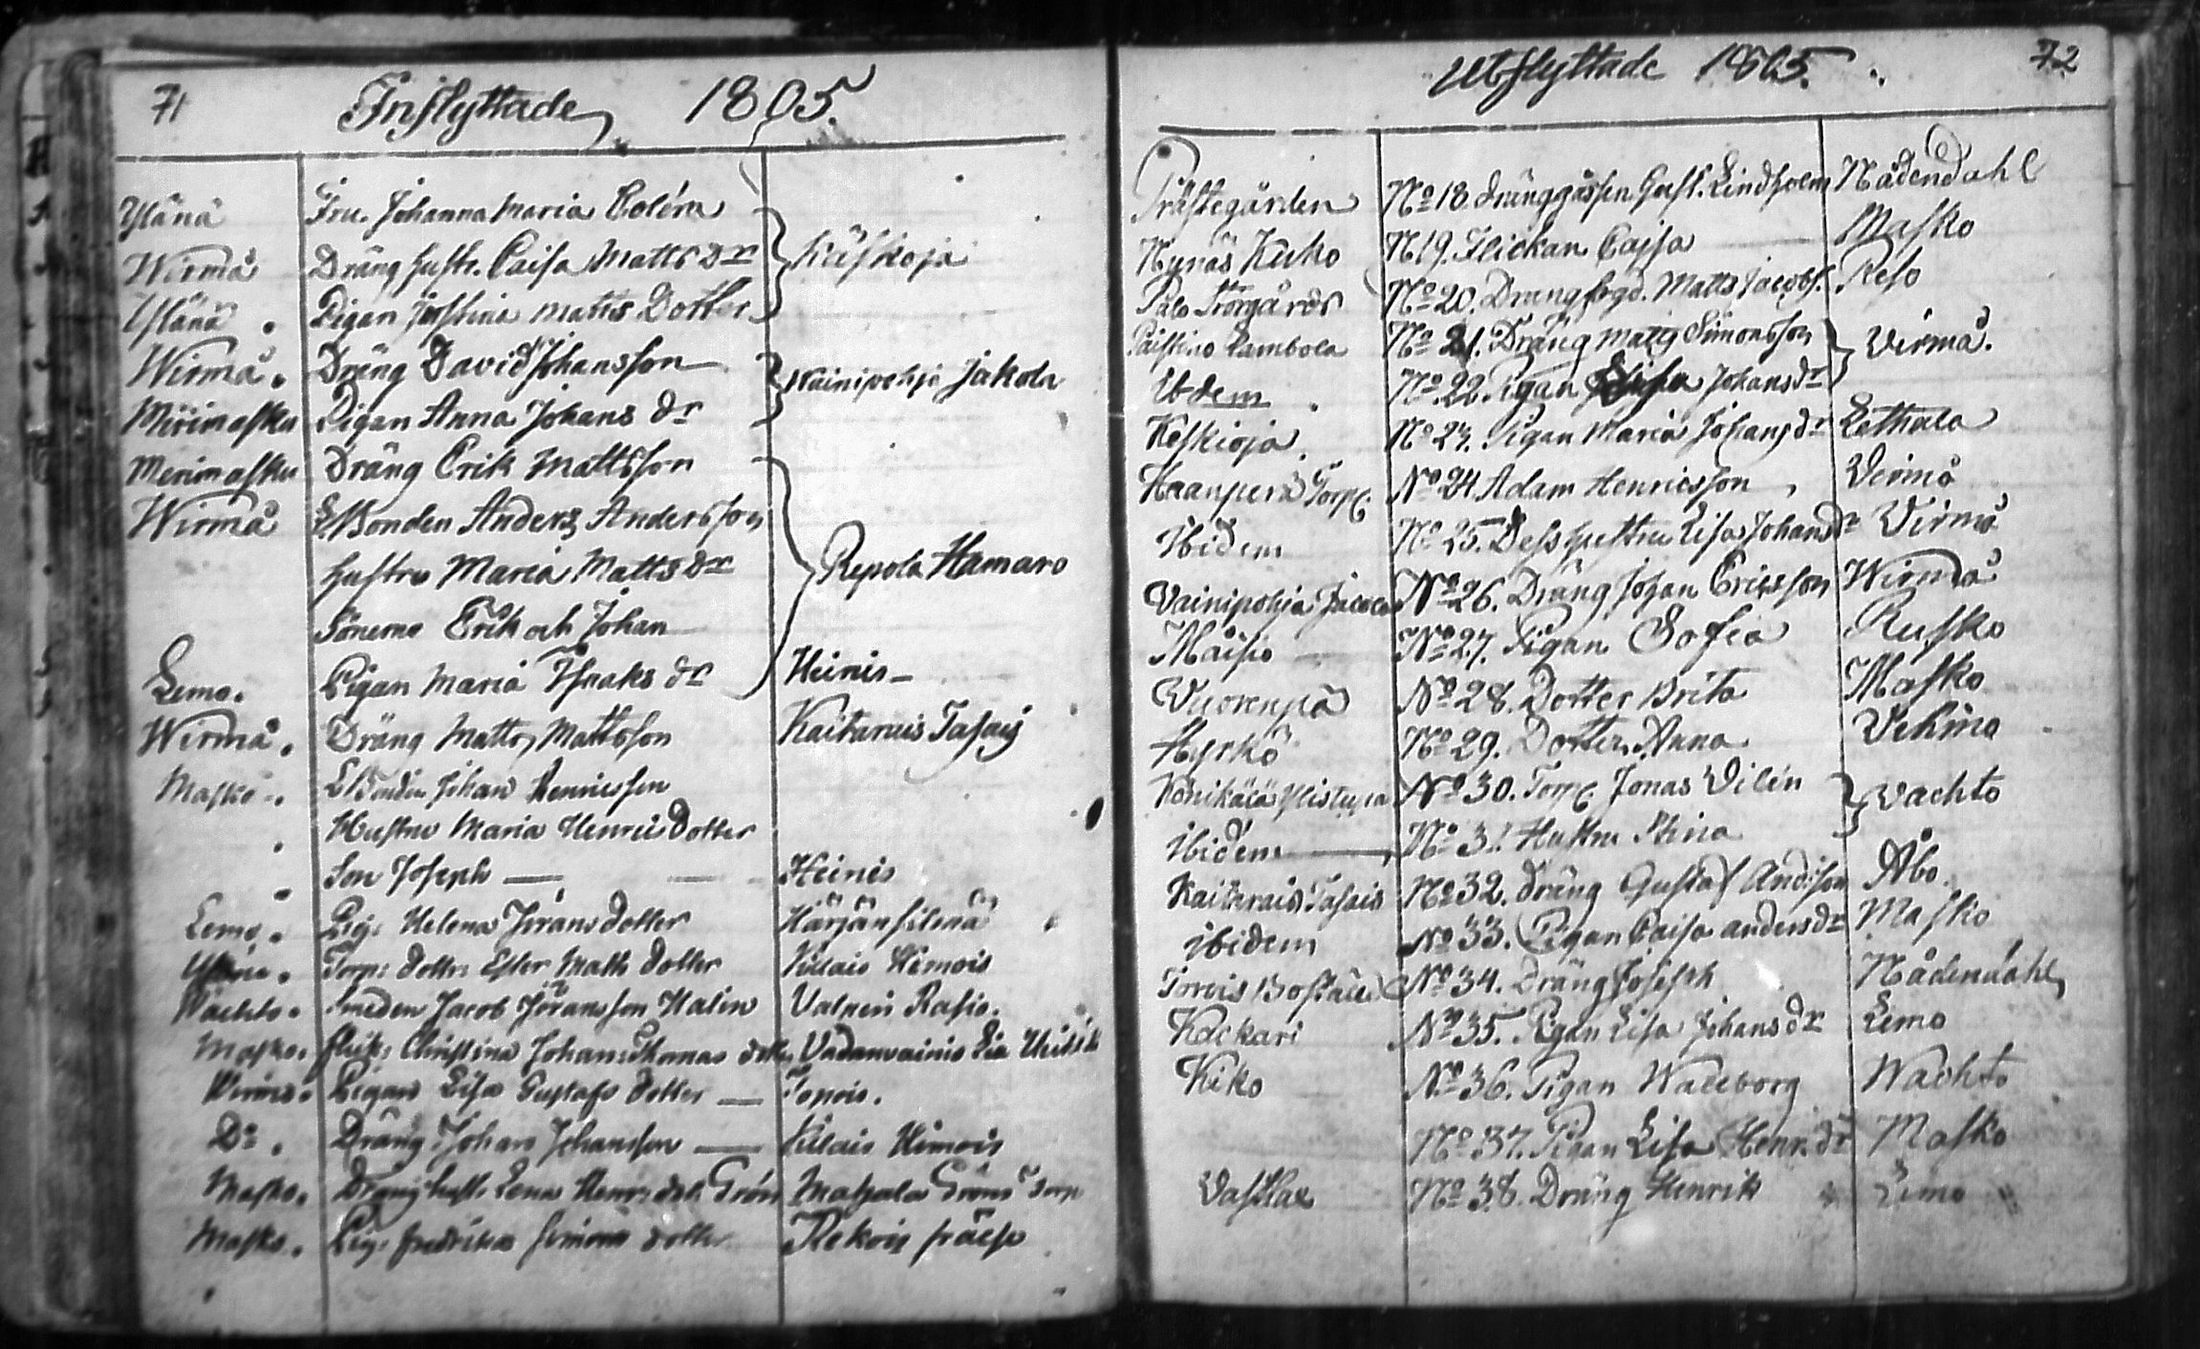 71
Inflyttade 1805.
Ylänä Fru Johanna Maria Bolöra
Wirmå Dräng hustr. Caisa Matts Dr Käskoja
Yläne Pigan Justina Matts Dotter
Wirmå. Dräng David Johansson
Merimasku Pigan Anna Johans dr Wainipohja Jakola
Merimasku Dräng Erik Mattsson
Wirmå Bonden Anders Andersson
hustru Maria Matts dr Repola Hamaro
Sönerne Erik och Johan
Lemo. Pigan Maria Isaaks dr Heinis
Wirmå. Dräng Matts Mattsson Kaitarais Tasais
Masko Johan Henricsson
Hustru Maria Henrics Dotter
Son Joseph Heinis
Lemo. Pig: Helena Jörans dotter Härjänsilmä
Torp: dottr: Ester Matts dotter Killais Himois
Wachto. Smeden Jacob Jöransson Malin Rasio.
Masko. Christina Johan Thomas
Wirmo. Pigan Lisa Gustafs dotter
Do. Dräng Johan Johansson Killais Himois
Masko. Dräng hust: Lena Grön Gröns Torp
Masko. Pig: Fredrika Simons dotter
Utflyttade 1805. 72
Prästegården No 18. dränggåssen Gust. Lindholm Nådendahl
Nynäs Kuko N 19. Flickan Cajsa Masko
No 20. Drängfogd. Matts Jacobs. Reso
No 21. Dräng Matts Simonsson Virmå.
Ibdem No 22. Pigan Johans dr
Keskioja No 23. Pigan Maria Johans dr Lethala
Haanperä Torp. No 24 Adam Henricsson Virmo
Ibidem No 25. Dess hustru Lisa Johans dr Virmo
Vainipohja Jacola No 26. Dräng Johan Ericsson Wirmå
Maisio No 27. Pigan Sofia Rusko
Vuorenpä No 28. Dotter Brita Masko
Hyrkö No 29. Dotter Anna Vehmo
No 30. Torp. Jonas Vilén Vachto
ibidem No 31 Hustru Stina
Kaitarais Tasais No 32. Dräng Gustaf Andison Åbo
ibidem No 33. Pigan Caisa anders dr Masko
No 34. Dräng Joseph Nådendahl
Kackari No 35. Pigan Lisa Johans dr Lemo
Kiko No 36. Pigan Walborg Wachto
No 37. Pigan Lisa Henr. dr Masko
No 38. Dräng Henrik Lemo